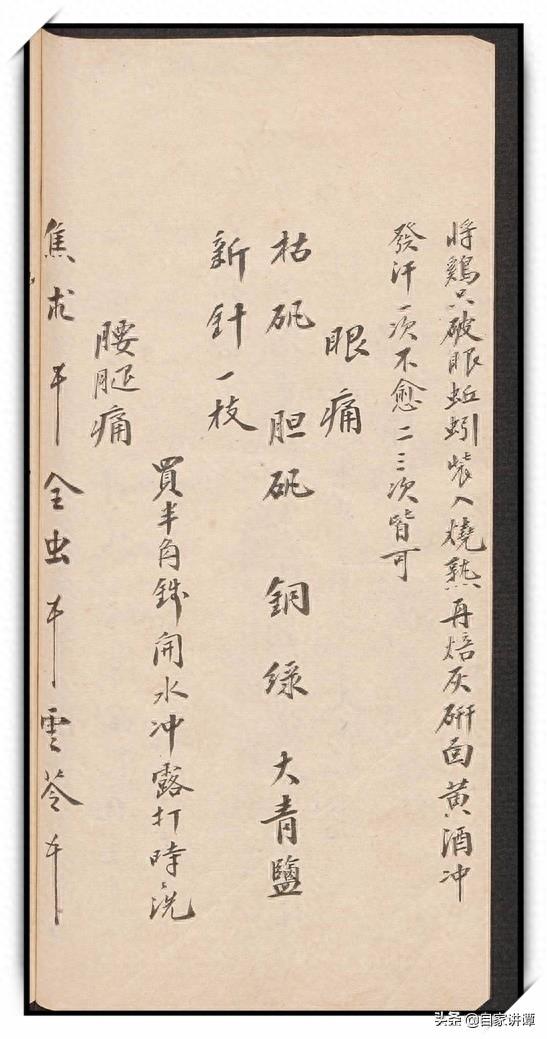 將鷄只破眼蚯蚓裝入燒熟再焙灰研面黄酒冲
發汗一次不愈二三次皆可
眼痛
枯矾 胆矾 銅绿 大青鹽
新針一枝
買半角錢開水冲露打時時洗
腰腿痛
焦朮 全虫 雲苓
头条 @自家讲谭